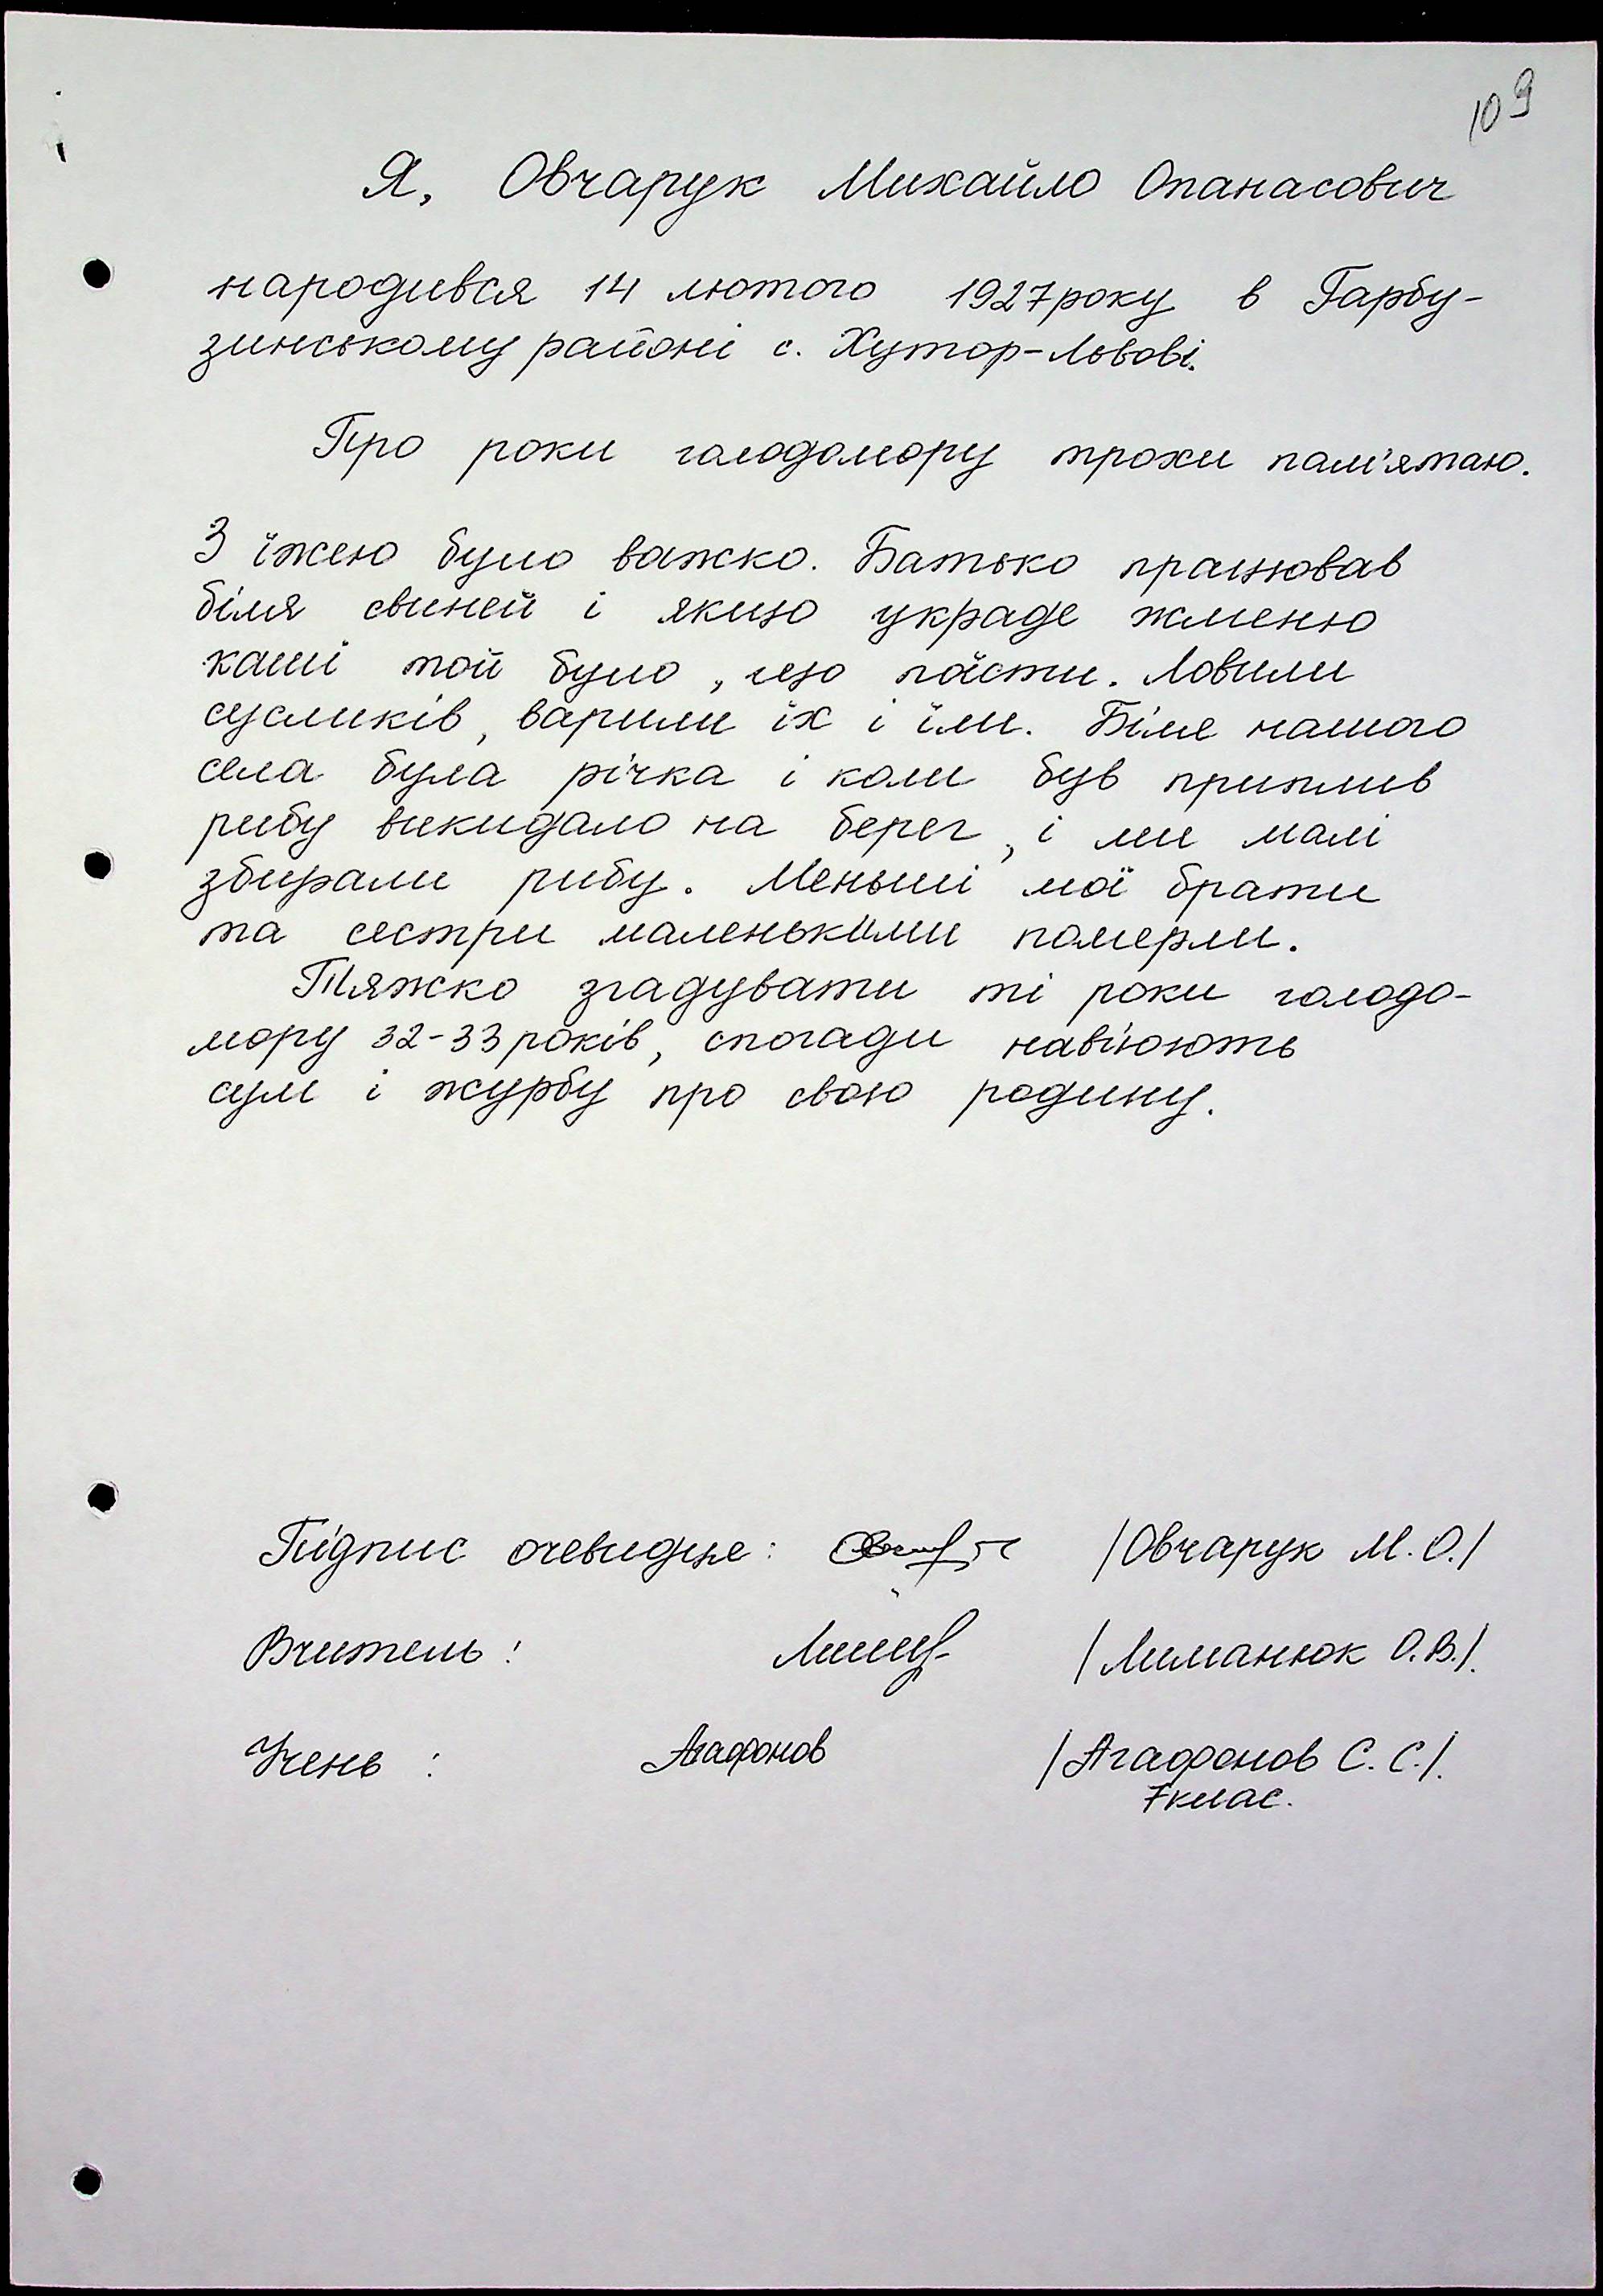 109
Я, Овчарук Михайло Опанасович
народився 14 лютого 1927року в Гарбу-
зинському районі с. Хутор-Львові.
Про роки голодомору трохи пам'ятаю.
З їжею було важко. Батько працював
біля свиней і якщо украде жменю
каші той було, що їсти. Ловили
сусликів, варили їх і їли. Біля нашого
села була річка і коли був приплив
рибу викидало на берег, і ми малі
збирали рибу. Меньші мої брати
та сестри маленькими померли.
Тяжко згадувати ті роки голодо-
мору 32-33 років, спогади навіюють
сум і журбу про свою родину.
Підпис очевидця: /Овчарук М.О./
Вчитель: /Лиманюк О.В./.
Учень: Агафонов /Агафонов С.С./.
7клас.